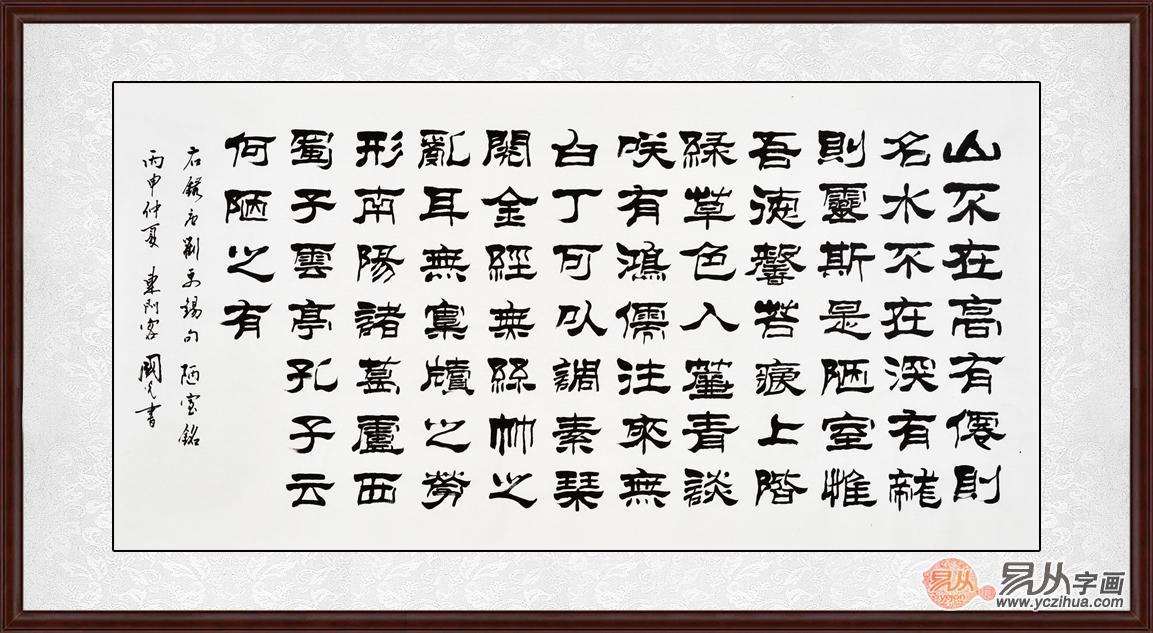 山不在高有僊則
名水不在深有龍
則靈斯是陋室惟
吾德馨苔痕上階
緑草色入簾青談
咲有鴻儒往來無
白丁可以調素琴
閱金經無絲竹之
亂耳無案牘之勞
形南陽諸葛廬西
蜀子雲亭孔子云
何陋之有
右錄唐劉禹錫句 陋室銘
丙申仲夏 東門客 國書
易从
yeison
易从字画
www.yczihua.com